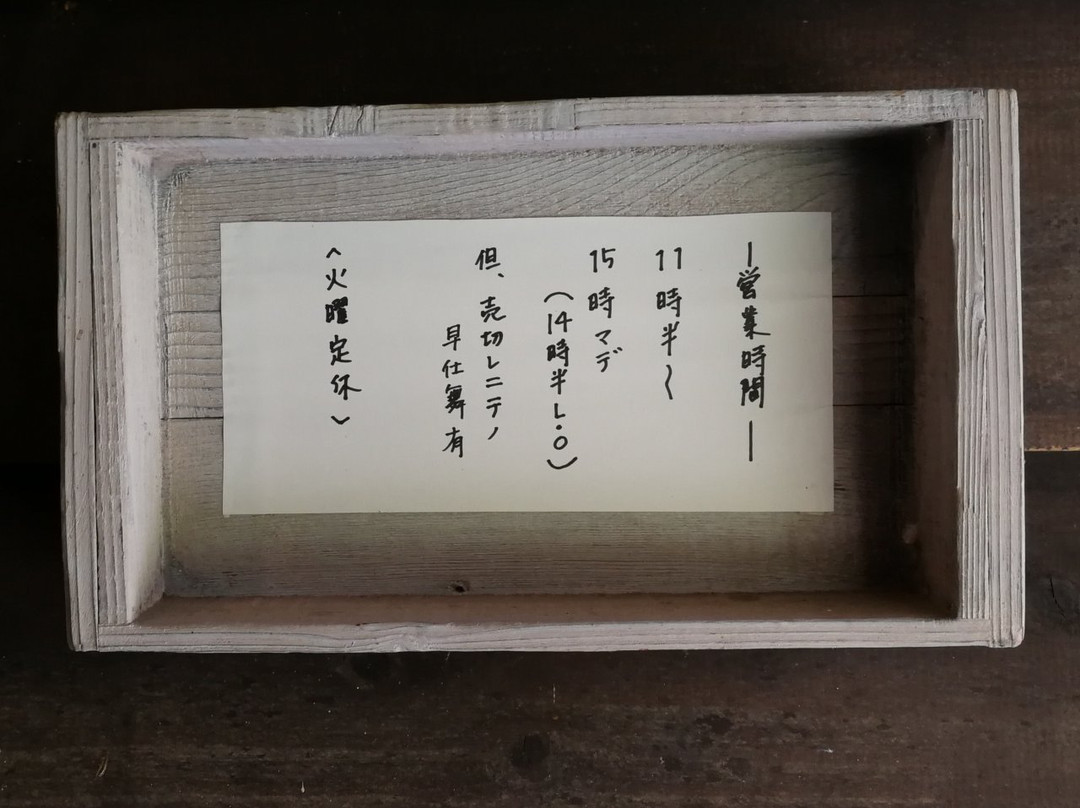 ー営業時間ー
11時半〜
15時マデ
(14時半L.O)
但、売切レニテノ
早仕舞有
<火曜定休>